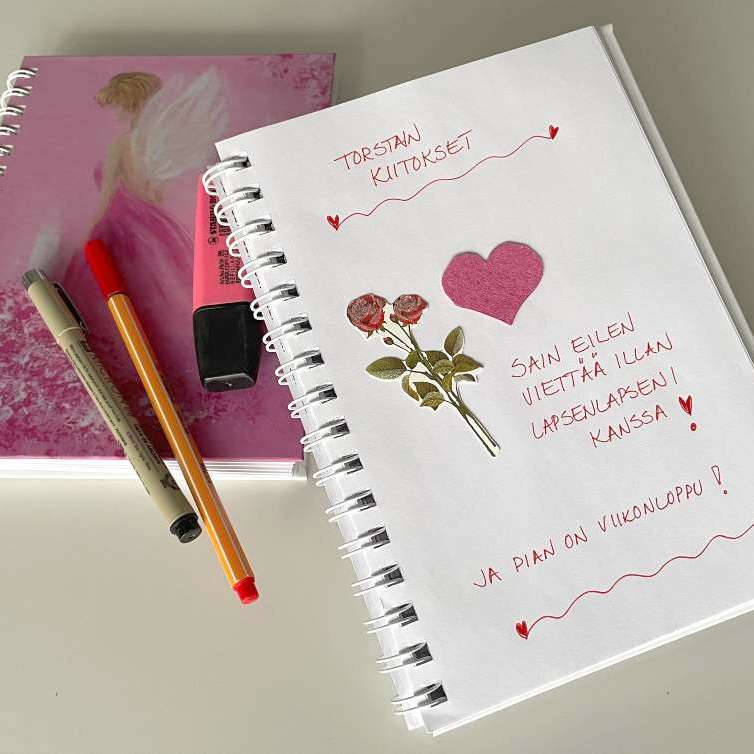 TORSTAIN
KIITOKSET
SAIN EILEN
VIETTÄÄ ILLAN
LAPSENLAPSENI
KANSSA
JA PIAN ON VIIKONLOPPU!